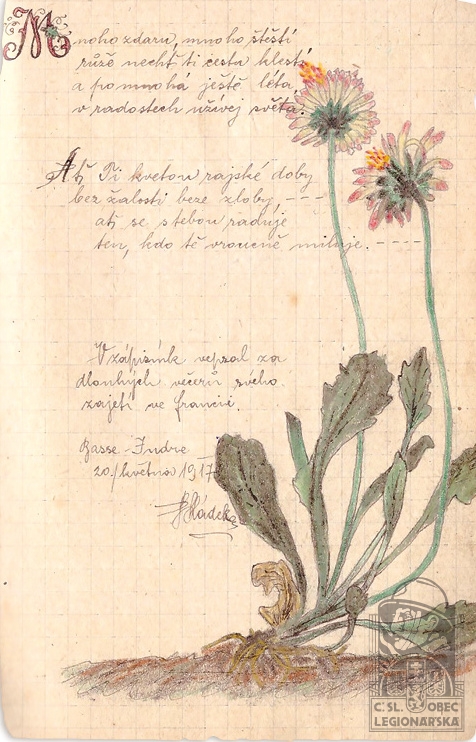 Mnoho zdaru, mnoho štěstí
růže nechť ti cestu klestí
a pomnohá ještě léta,
v radostech užívej světa.
Ať Ti kvetou rajské doby
bez žalosti beze zloby, ---
ať se s tebou raduje
ten, kdo tě vroucně miluje. ----
V zápisník vepsal za
dlouhých večerů svého
zajetí ve Francii.
Basse-Indre
20./května 1917
Hládek
Č.SL. OBEC
LEGIONÁŘSKÁ